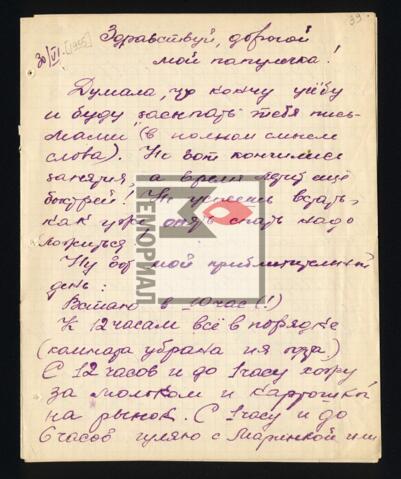 39.
30/VI. [1945]
Здравствуй, дорогой
мой папулечка!
Думала, что кончу учёбу
и буду засыпать тебя пись-
мами (в полном смысле
слова). Но вот кончились
занятия, а время идёт ещё
быстрей! Не успеешь встать,
как уже опять спать надо
ложиться.
Ну вот мой приблизительный
день:
Встаю в 10 час (!)
К 12 часам всё в порядке
(комната убрана и я тоже)
С 12 часов и до 1 часу хожу
за молоком и картошкой
на рынок. С 1 часу и до
6 часов гуляю с Маринкой или
МЕМОРИАЛ